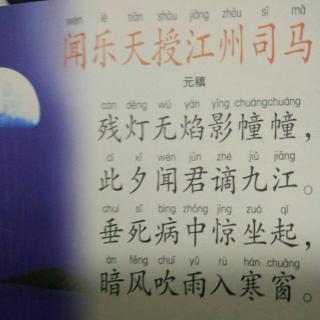 wén lè tiān shòu jiāng zhōu sī mǎ
闻乐天授江州司马
元稹
cán dēng wú yàn yǐng chuángchuáng
残灯无焰影幢幢，
cǐ xī wén jūn zhé jiǔ jiāng
此夕闻君谪九江。
chuí sǐ bìng zhōng jīng zuò qǐ
垂死病中惊坐起，
àn fēng chuī yǔ rù hán chuāng
暗风吹雨入寒窗。